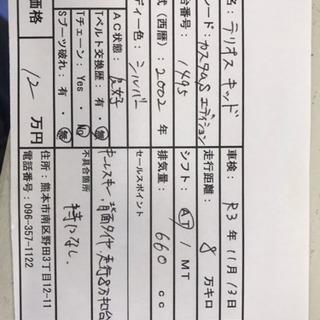 名：テリオスキッド
車検：R3年11月13日
レード：カスタムSエディション
走行距離：8万キロ
台番号：1495
シフト：AT / MT
式（西暦）：2002年
排気量：660 cc
ディー色：シルバー
セールスポイント
キーレスキー、背面タイヤ、走行8万キロ台
AC状態：良好
Tベルト交換歴：有・無
Tチェーン：Yes・No
Sブーツ破れ：有・無
不具合箇所
特になし
価格 12万円
住所：熊本市南区野田3丁目12-11
電話番号：096-357-1122